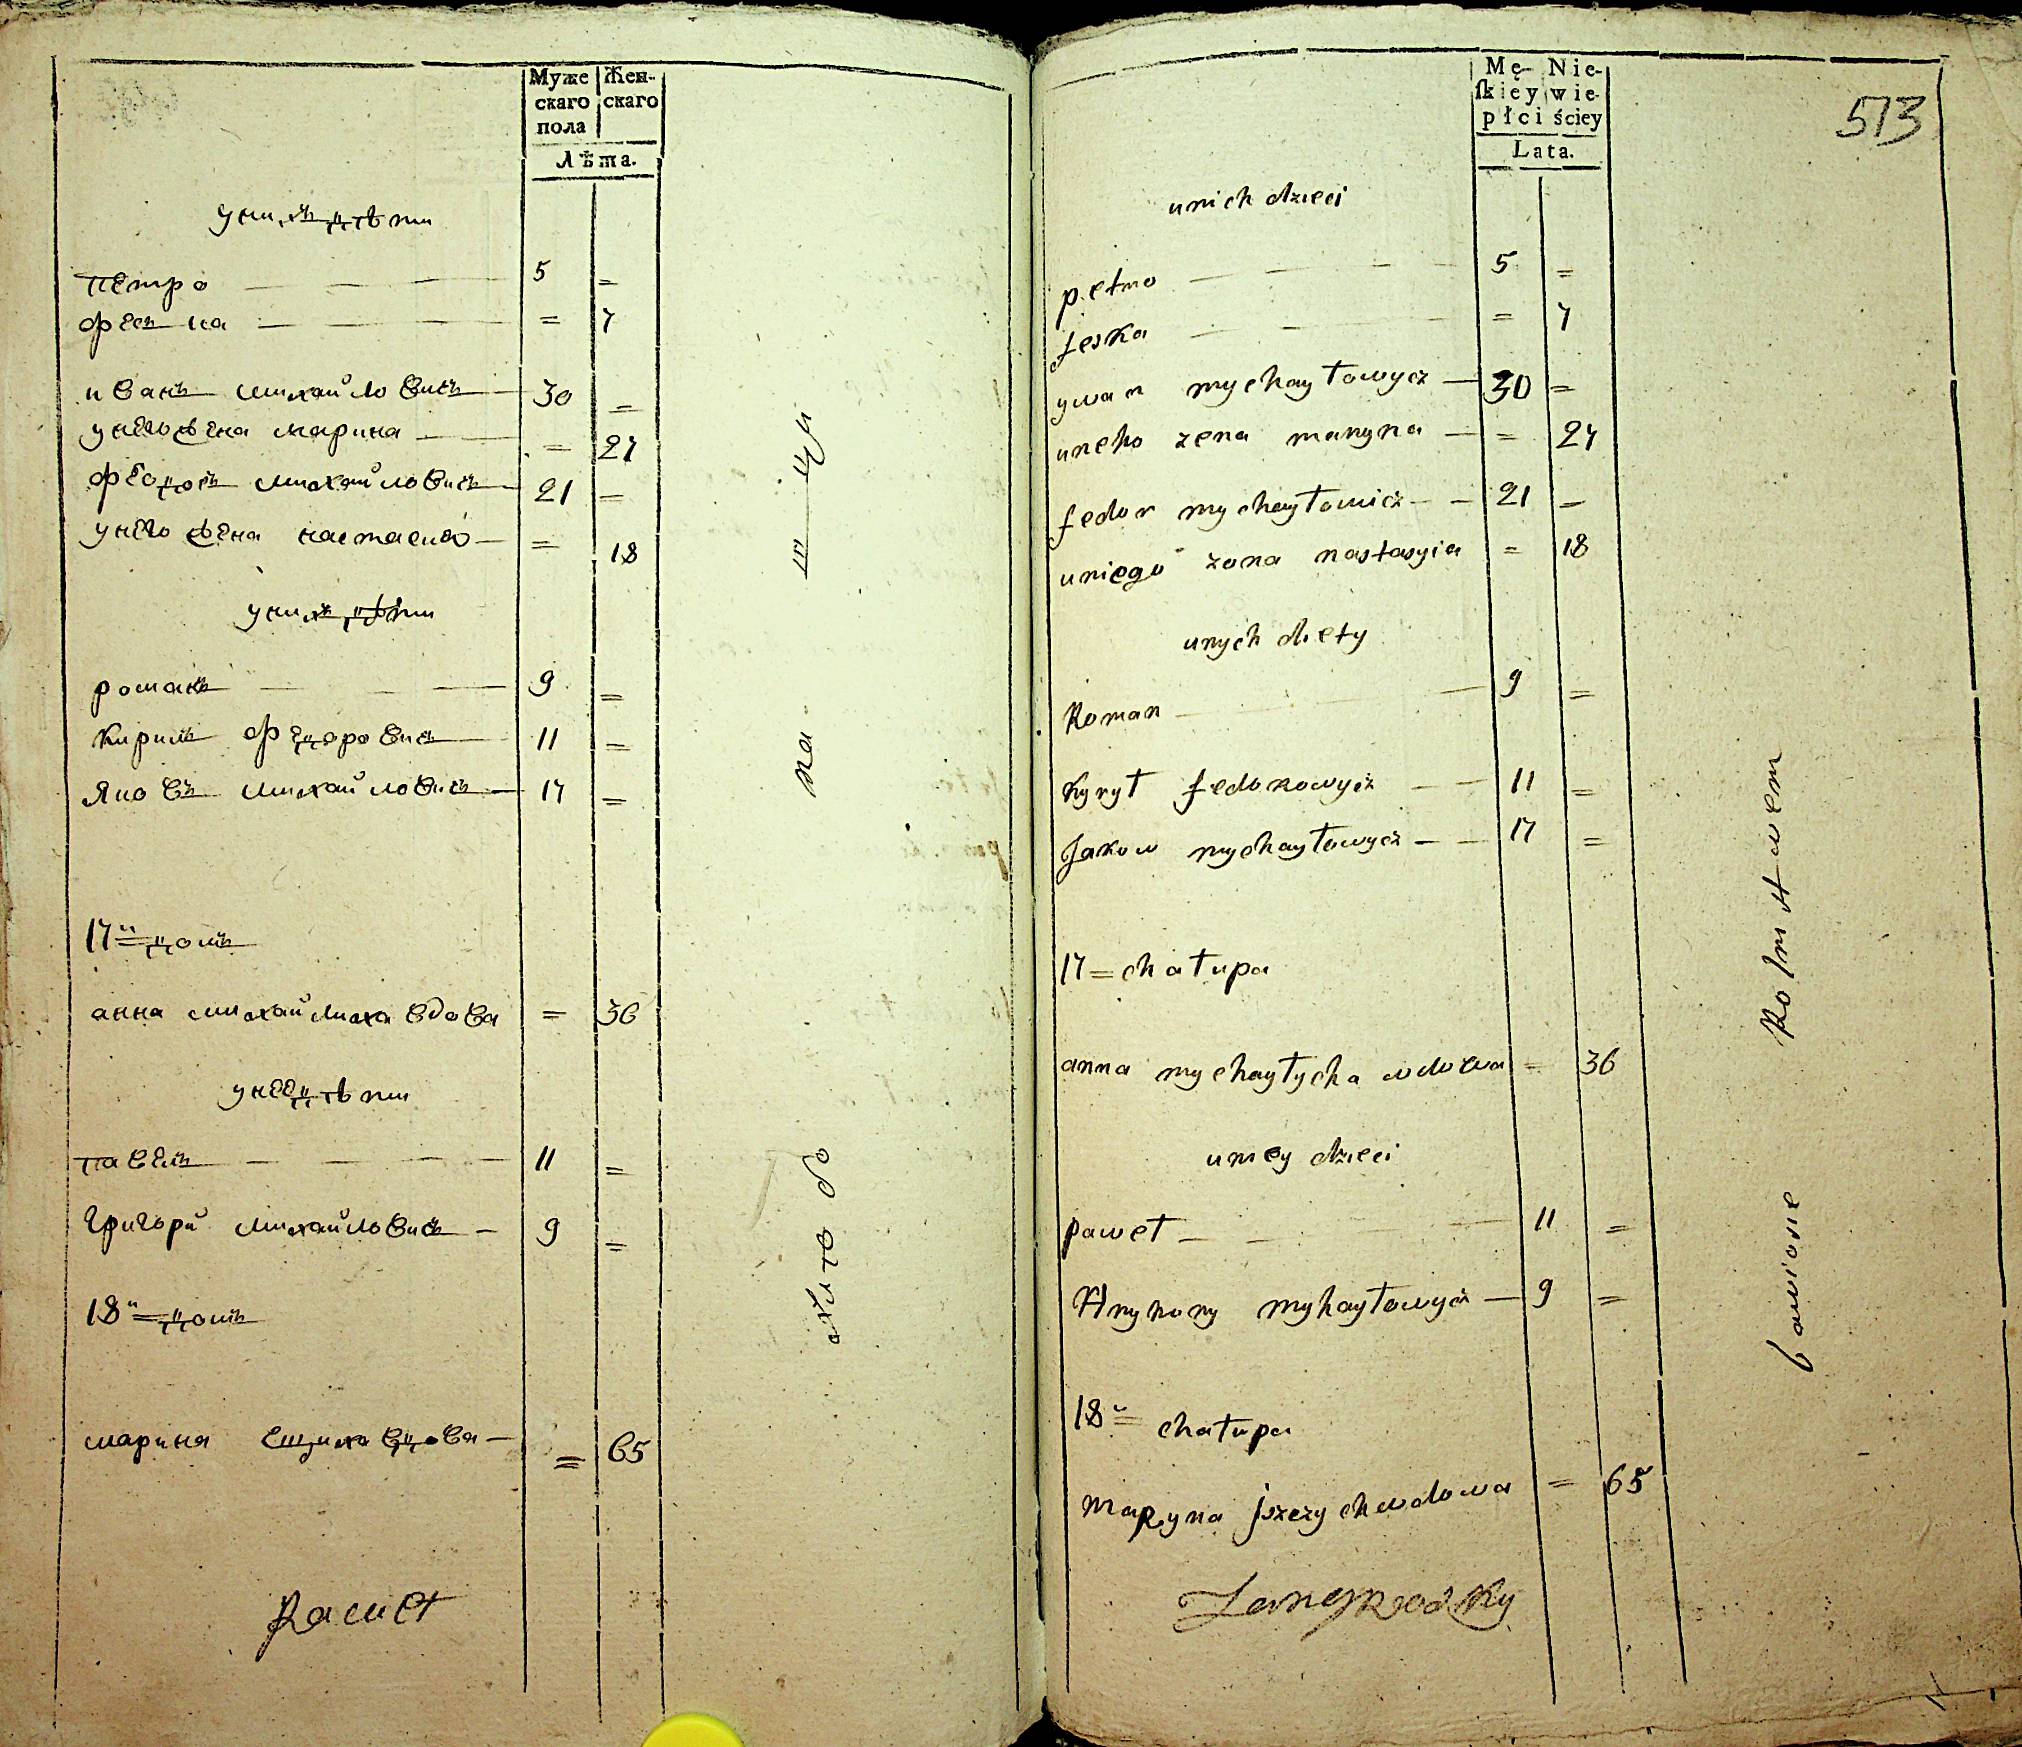 Муже Жен-
скаго скаго
пола
Лѣта.
уних дѣти
петро 5 =
феська = 7
иванъ михайловичъ 30 =
унего жена марина = 27
феодоръ михайловичъ 21 =
унего жена настасия = 18
уних дѣти
романъ 9 =
кирилъ федоровичъ 11 =
яковъ михайловичъ 17 =
17й домъ
анна михайлиха вдова = 36
унее дѣти
павелъ 11 =
григори михайловичъ 9 =
18й домъ
марина ещиха вдова = 65
Mę- Nie-
ſkiey wie-
płci ściey
Lata.
513
unich dzieci
petro 5 =
feska = 7
ywan mychayłowycz 30 =
uneho zena maryna = 27
fedor mychayłowicz 21 =
uniego zona nastasyia = 18
unych diety
Roman 9 =
Kyrył fedorowycz 11 =
Jakow mychayłowycz 17 =
17 = chałupa
anna mychayłycha wdowa = 36
uniey dzieci
paweł 11 =
Hryhory myhayłowycz 9 =
18 = chałupa
maryna jszczychwdowa = 65